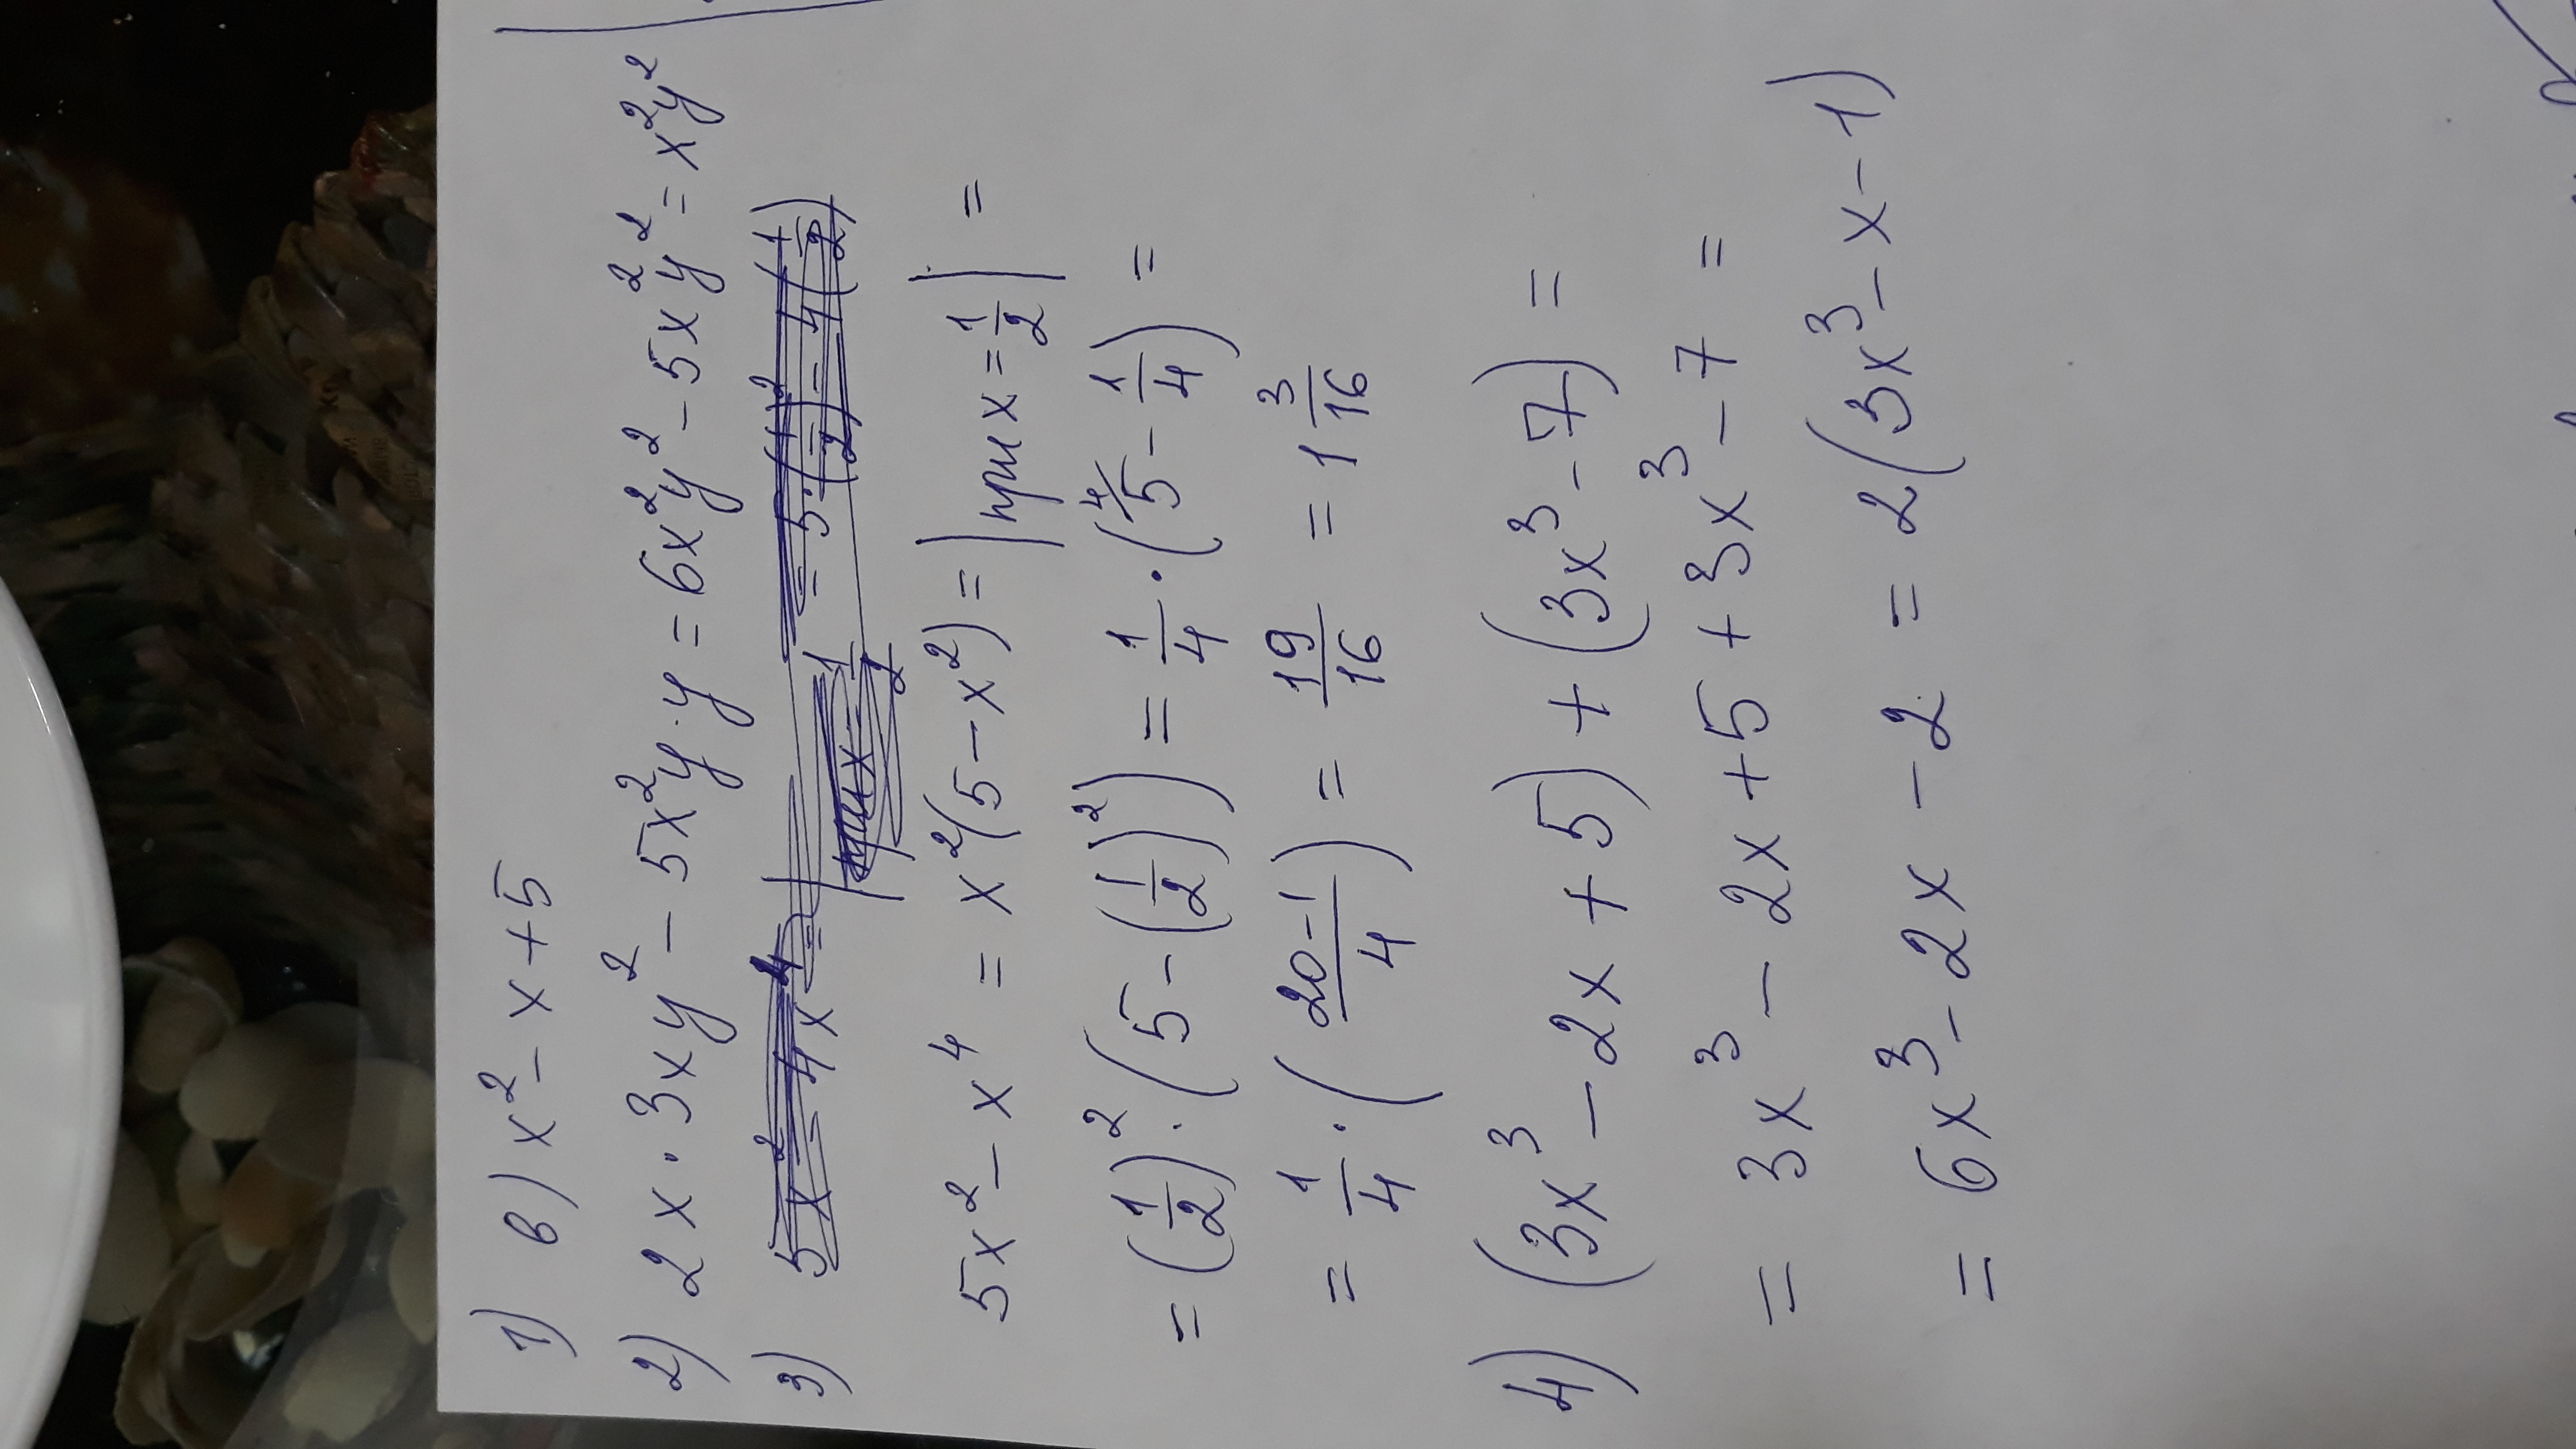 1) в) x² - x + 5
2) 2x · 3xy² - 5x²y · y = 6x²y² - 5x²y² = x²y²
3) 5x² - 4x⁴ = |при x = 1/2| = 5 · (1/2)² - 4(1/2)
5x² - x⁴ = x²(5 - x²) = |при x = 1/2| =
= (1/2)² · (5 - (1/2)²) = 1/4 · (⁴/5 - 1/4) =
= 1/4 · (20-1/4) = 19/16 = 1 3/16
4) (3x³ - 2x + 5) + (3x³ - 7) =
= 3x³ - 2x + 5 + 3x³ - 7 =
= 6x³ - 2x - 2 = 2(3x³ - x - 1)